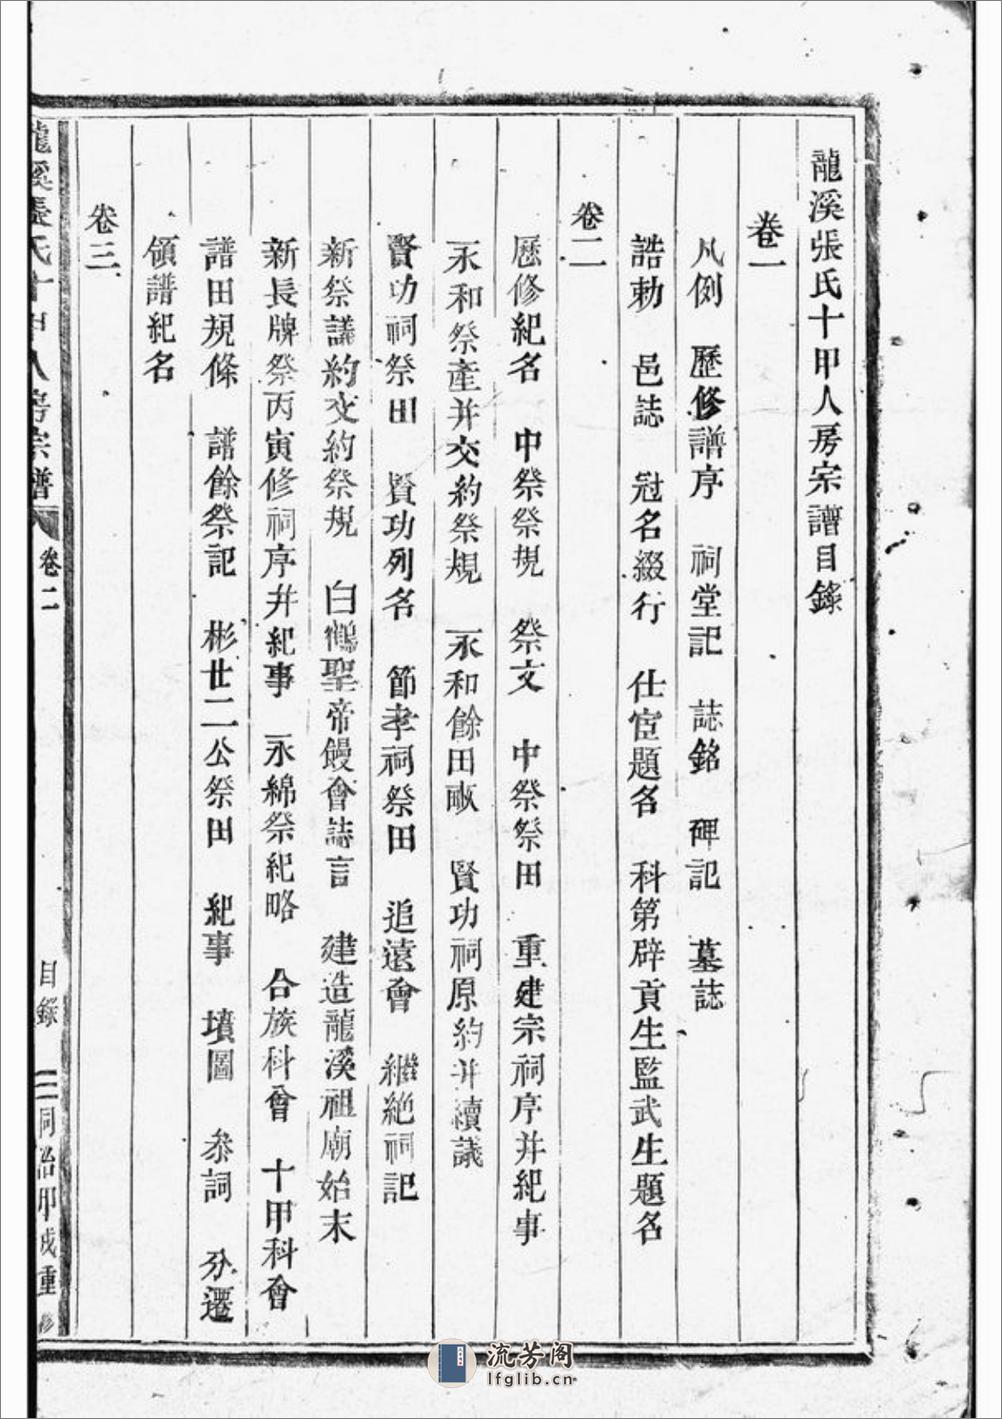 龍溪張氏十甲人房宗譜目錄
卷一
凡例 歷修譜序 祠堂記 誌銘 碑記 墓誌
誥勅 邑誌 冠名綴行 仕宦題名 科第辟貢生監武生題名
卷二
歷修紀名 中祭祭規 祭文 中祭祭田 重建宗祠序并紀事
永和祭產并交約祭規 永和餘田畝 賢功祠原約并續議
賢功祠祭田 賢功列名 節孝祠祭田 追遠會 繼絶祠記
新祭議約交約祭規 白鶴聖帝餿會誌言 建造龍溪祖廟始末
新長牌祭丙寅修祠序并紀事 永綿祭紀略 合族科會 十甲科會
譜田規條 譜餘祭記 彬世二公祭田 紀事 墳圖 叅詞 分遷
領譜紀名
卷三
龍溪張氏十甲人房宗譜 卷二 目錄 二 同治甲戌重修
流芳阁
lfglib.cn